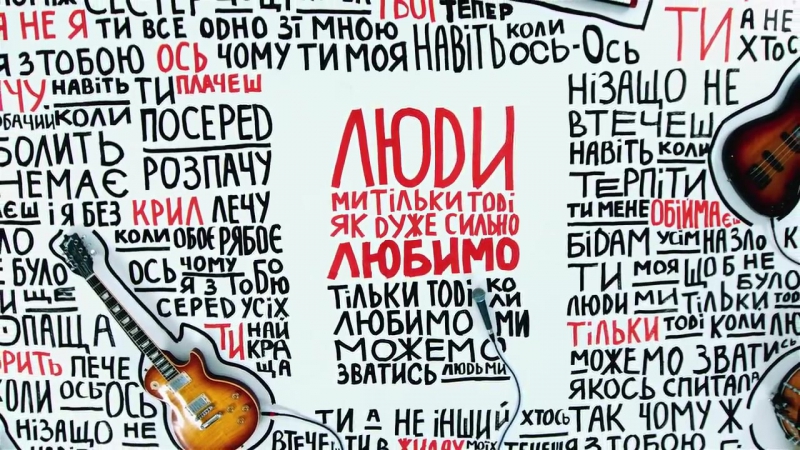 ТВОЇ ТЕПЕР
Я НЕ Я ТИ ВСЕ ОДНО ЗІ МНОЮ
З ТОБОЮ ОСЬ ЧОМУ ТИ МОЯ НАВІТЬ КОЛИ ОСЬ-ОСЬ
ТИ А НЕ
ХТОСЬ
НАВІТЬ ТИ ПЛАЧЕШ
КОЛИ ПОСЕРЕД
БОЛИТЬ РОЗПАЧУ
НЕМАЄ
І Я БЕЗ КРИЛ ЛЕЧУ
КОЛИ ОБОЄ РЯБОЄ
БУЛО ОСЬ ЧОМУ БО
Я З ТОБОЮ
ЩЕ СЕРЕД УСІХ
ТИ НАЙ
КРА
ЩА
ПЕЧЕ
КОЛИ ОСЬ-
ОСЬ
НІЗАЩО НЕ
ЛЮДИ
МИ ТІЛЬКИ ТОДІ
ЯК ДУЖЕ СИЛЬНО
ЛЮБИМО
ТІЛЬКИ ТОДІ КО
ЛИ
ЛЮБИМО МИ
МОЖЕМО
ЗВАТИСЬ ЛЮДЬМИ
НІЗАЩО НЕ
ВТЕЧЕШ
НАВІТЬ КОЛИ
ТЕРПІТИ
ТИ МЕНЕ ОБІЙМАЄШ
БІДАМ УСІМ НА ЗЛО
ТИ МОЯ ЩОБ НЕ
БУЛО
ЛЮДИ МИ ТІЛЬКИ ТОДІ
ТІЛЬКИ ТОДІ КОЛИ
МОЖЕМО ЗВАТИСЬ
ЯКОСЬ СПИТАЛА
ТИ А НЕ ІНШИЙ ХТОСЬ ТАК ЧОМУ Ж
ТИ В ЖИЛАХ МОЇХ ТЕЧЕШ Я З ТОБОЮ